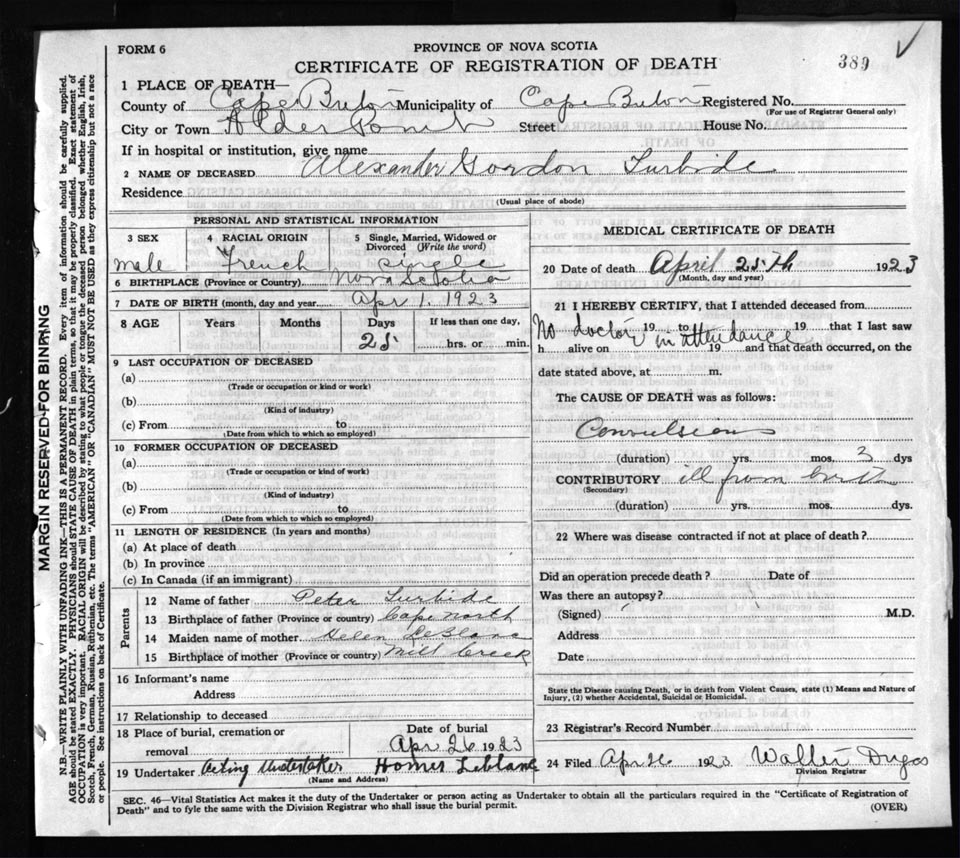 FORM 6
PROVINCE OF NOVA SCOTIA
CERTIFICATE OF REGISTRATION OF DEATH
389
1 PLACE OF DEATH—
County of Cape Breton Municipality of Cape Breton Registered No.
(For use of Registrar General only)
City or Town Alder Point Street House No.
If in hospital or institution, give name
2 NAME OF DECEASED Alexander Gordon Turbide
Residence
(Usual place of abode)
PERSONAL AND STATISTICAL INFORMATION
3 SEX 4 RACIAL ORIGIN 5 Single, Married, Widowed or Divorced (Write the word)
male French single
6 BIRTHPLACE (Province or Country) Nova Scotia
7 DATE OF BIRTH (month, day and year) Apr 1. 1923
8 AGE Years Months Days If less than one day,
25 hrs. or min.
9 LAST OCCUPATION OF DECEASED
(a)
(Trade or occupation or kind or work)
(b)
(Kind of industry)
(c) From to
(Date from which to which so employed)
10 FORMER OCCUPATION OF DECEASED
(a)
(Trade or occupation or kind of work)
(b)
(Kind of industry)
(c) From to
(Date from which to which so employed)
11 LENGTH OF RESIDENCE (In years and months)
(a) At place of death
(b) In province
(c) In Canada (if an immigrant)
Parents
12 Name of father Peter Turbide
13 Birthplace of father (Province or country) Cape North
14 Maiden name of mother Helen LeBlanc
15 Birthplace of mother (Province or country) Mill Creek
16 Informant's name
Address
17 Relationship to deceased
18 Place of burial, cremation or removal Date of burial
Apr 26 1923
19 Undertaker Acting Undertaker Homer Leblanc
(Name and Address)
MEDICAL CERTIFICATE OF DEATH
20 Date of death April 25th 1923
(Month, day and year)
21 I HEREBY CERTIFY, that I attended deceased from
No doctor 19 to in attendance 19 that I last saw
h alive on 19 and that death occurred, on the
date stated above, at m.
The CAUSE OF DEATH was as follows:
Convulsions
(duration) yrs. mos. 3 dys
CONTRIBUTORY ill from birth
(Secondary)
(duration) yrs. mos. dys.
22 Where was disease contracted if not at place of death?
Did an operation precede death? Date of
Was there an autopsy?
(Signed) M.D.
Address
Date
State the Disease causing Death, or in death from Violent Causes, state (1) Means and Nature of
Injury, (2) whether Accidental, Suicidal or Homicidal.
23 Registrar's Record Number
24 Filed Apr 26 1923 Walter
Division Registrar
SEC. 46—Vital Statistics Act makes it the duty of the Undertaker or person acting as Undertaker to obtain all the particulars required in the "Certificate of Registration of
Death" and to fyle the same with the Division Registrar who shall issue the burial permit.
(OVER)
MARGIN RESERVED FOR BINDING
N.B.—WRITE PLAINLY WITH UNFADING INK—THIS IS A PERMANENT RECORD. Every item of information should be carefully supplied.
AGE should be stated EXACTLY. PHYSICIANS should STATE CAUSE OF DEATH in plain terms, so that it may be properly classified. Exact statement of
OCCUPATION is very important. RACIAL ORIGIN will be described by stating to what people or tongue the deceased person belonged, whether English, Irish,
Scotch, French, German, Russian, Ruthenian, etc. The terms "AMERICAN" OR "CANADIAN" MUST NOT BE USED as they express citizenship but not a race
or people. See instructions on back of Certificate.